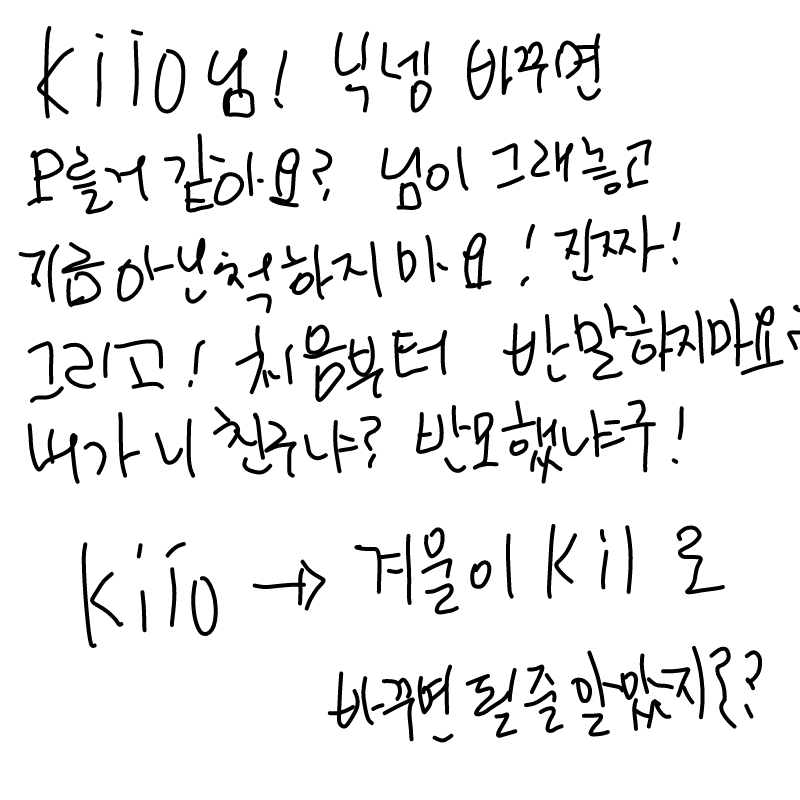 kiio님! 닉넴 바꾸면
모를거 같아요? 님이 그래놓고
지금 아닌척 하지마요! 진짜!
그리고! 처음부터 반말하지마요?
내가 니 친구냐? 반모했냐구!
kiio → 겨울이 kil 로
바꾸면 될줄 알았지?